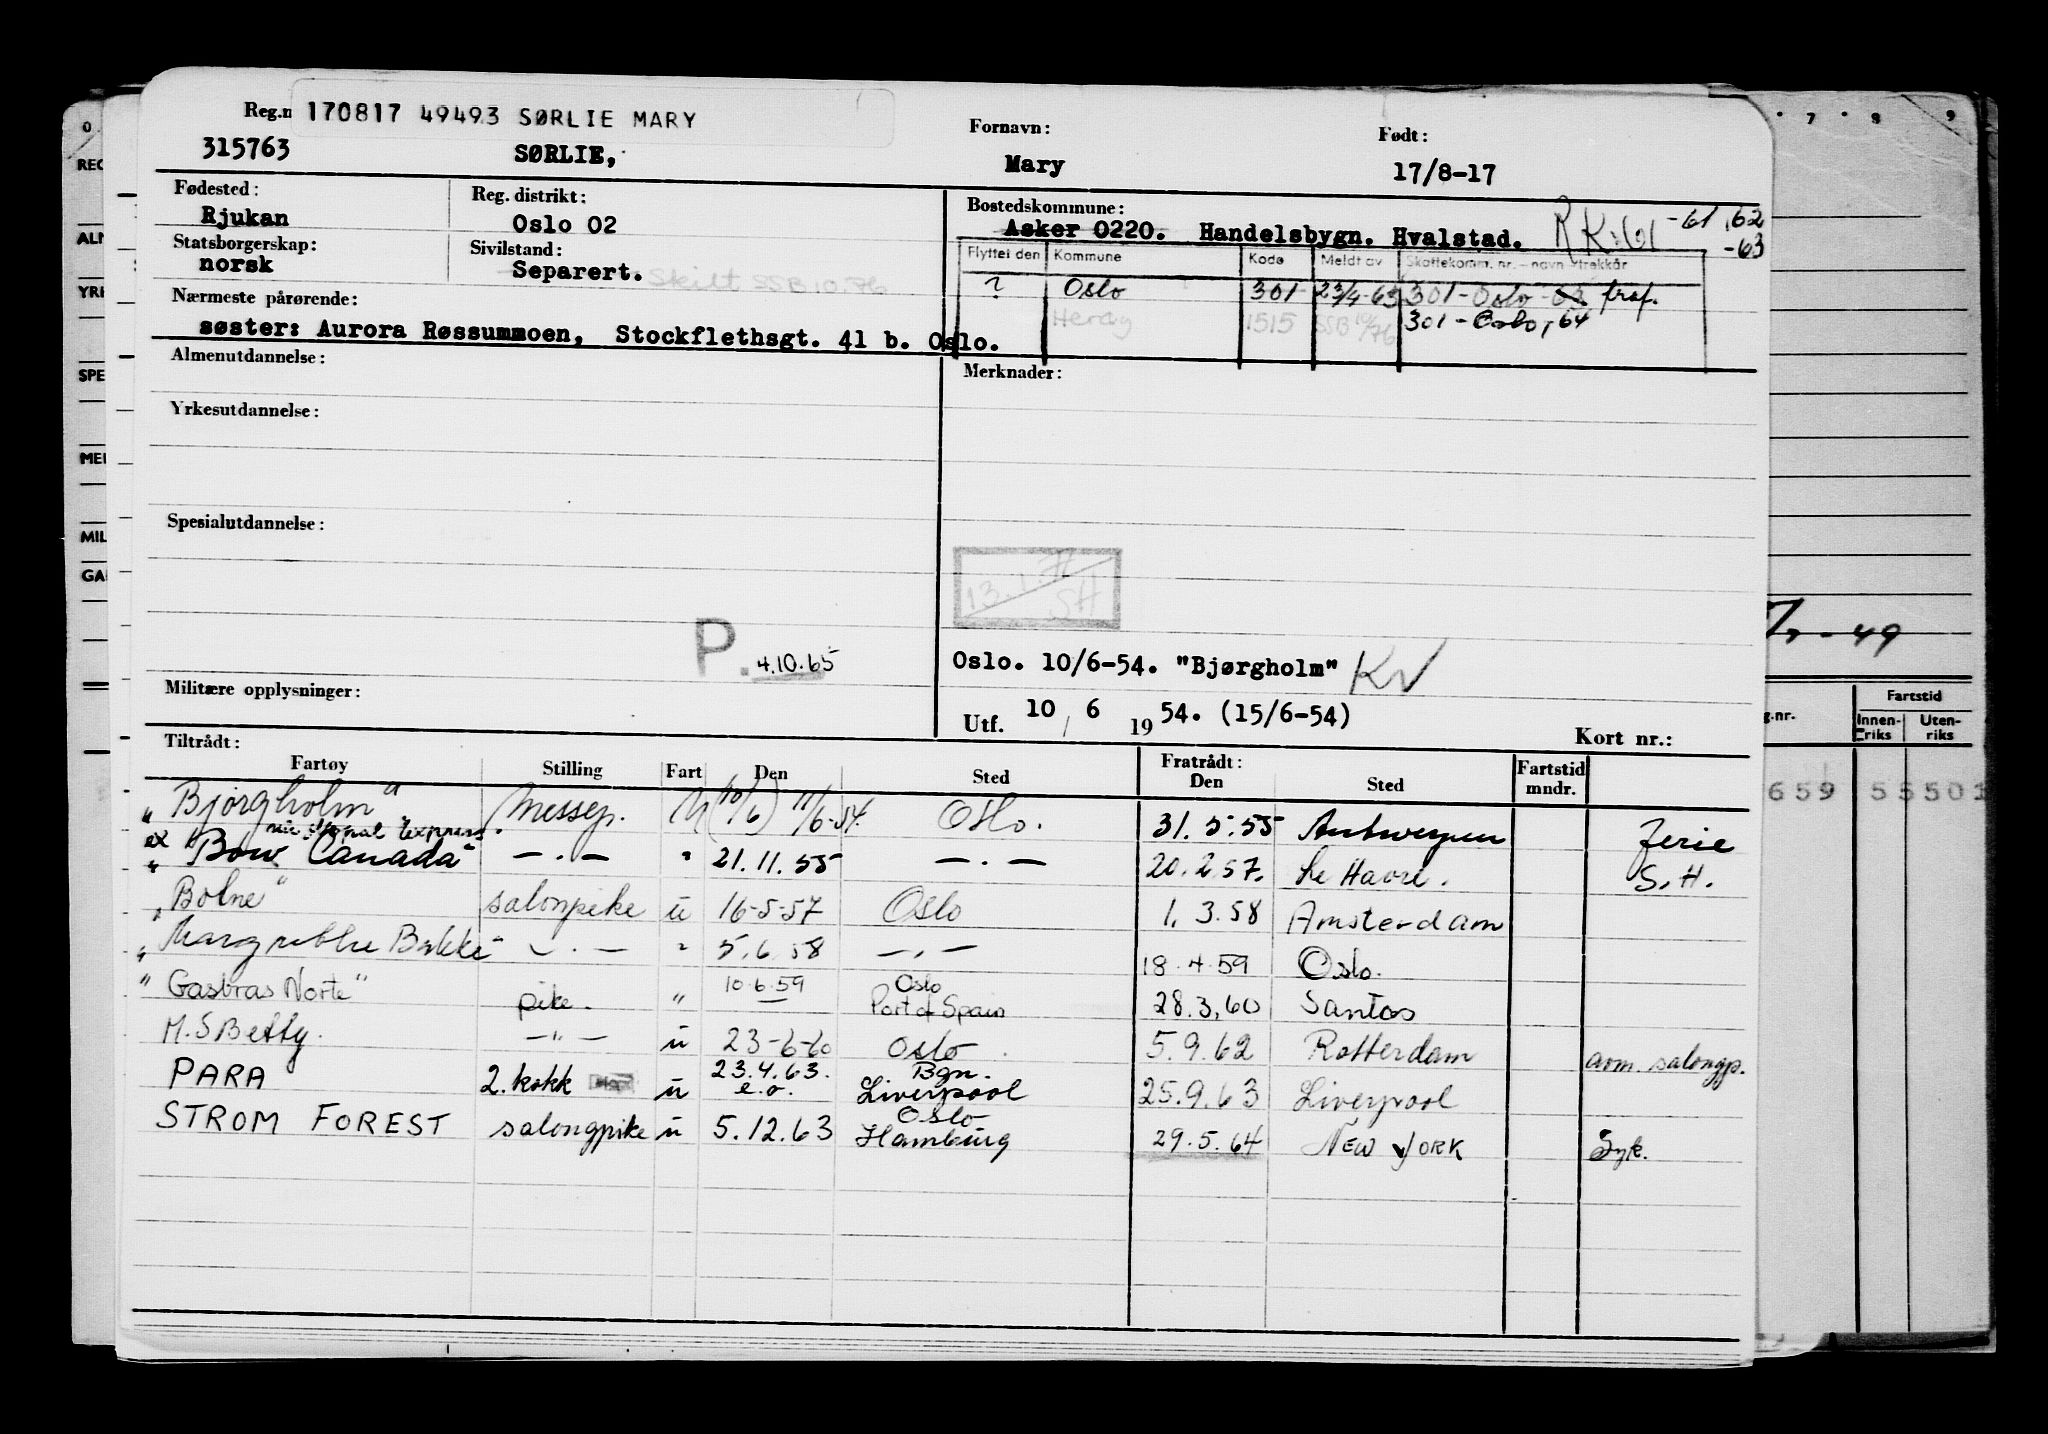 170817 49493 SØRLIE MARY
Reg.n
315763 SØRLIE,
Fornavn: Mary
Født: 17/8-17
Fødested: Rjukan
Reg. distrikt: Oslo 02
Bostedskommune: Asker 0220. Handelsbygn. Hvalstad. -61 ,62 -63
Statsborgerskap: norsk
Sivilstand: Separert. Skilt SSB 10.76
Flyttet den Kommune Kode Meldt av Skattekomm. nr. - navn
? Oslo 301 23/4-63 301 - Oslo - 63 traf.
Herøy 1515 SSB 301 - Oslo, 64
Nærmeste pårørende:
søster: Aurora Røssummoen, Stockflethsgt. 41 b. Oslo.
Almenutdannelse:
Merknader:
Yrkesutdannelse:
Spesialutdannelse:
13.1.71
SH
P. 4.10.65
Oslo. 10/6-54. "Bjørgholm" KV
Militære opplysninger:
Utf. 10 / 6 1954. (15/6-54)
Kort nr.:
Tiltrådt: Fratrådt:
Fartøy Stilling Fart Den Sted Den Sted Fartstid mndr.
"Bjørgholm" Messep. U (10/6) 11/6-54. Oslo. 31.5.55 Antwerpen Ferie
ex "National Express"
"Bow Canada" — . — " 21.11.55 — . — 20.2.57. Le Havre. S.H.
"Bolne" salonpike u 16-5-57 Oslo 1.3.58 Amsterdam
"Margrethe Bakke" — . — " 5.6.58 — . — 18.4.59 Oslo.
"Gasbras Norte" pike. " 10.6.59 Oslo Port of Spain 28.3.60 Santos
M.S Betty. — " — u 23-6-60 Oslo 5.9.62 Rotterdam avm. salongp.
PARA 2. kokk u 23.4.63. e.o. Bgn. Liverpool 25.9.63 Liverpool
STROM FOREST salongpike u 5.12.63 Oslo Hamburg 29.5.64 NEW YORK Syk.
O
REG
ALM
YRK
SPE
MIL
7 8 9
-49
g.nr.
Fartstid
Innenriks
Utenriks
659 55501